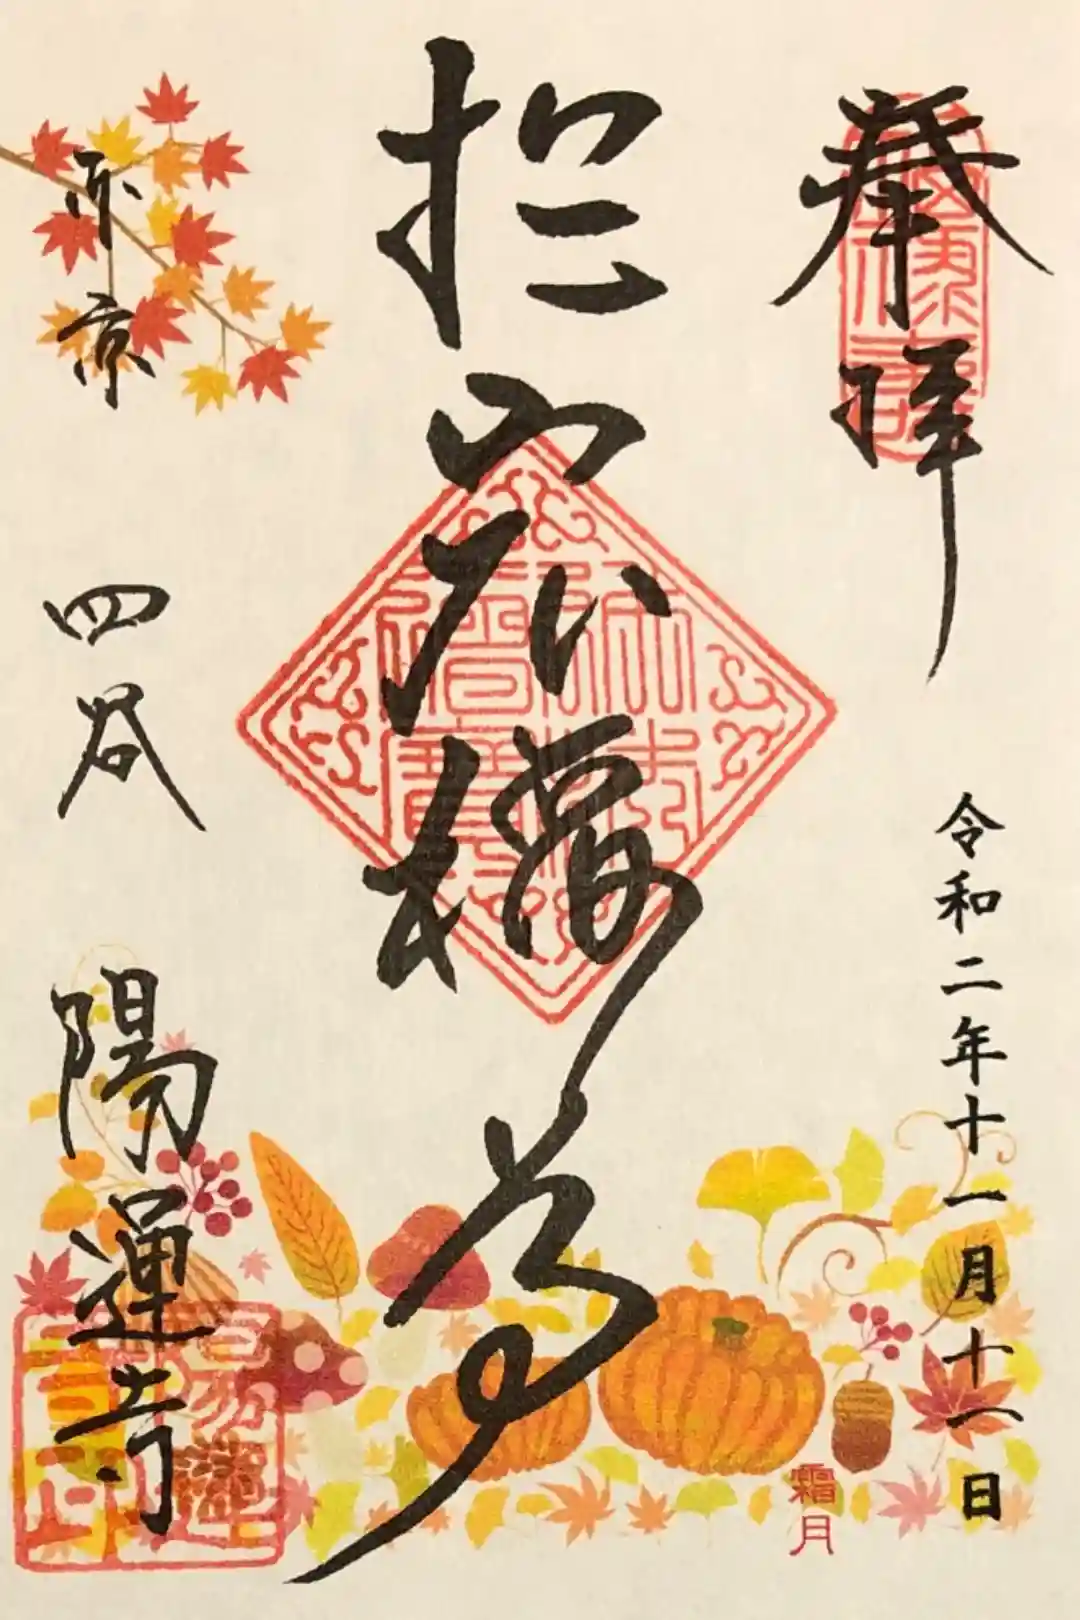 奉拝
令和二年十一月十一日
於岩稲荷
東京 四谷 陽運寺
霜月